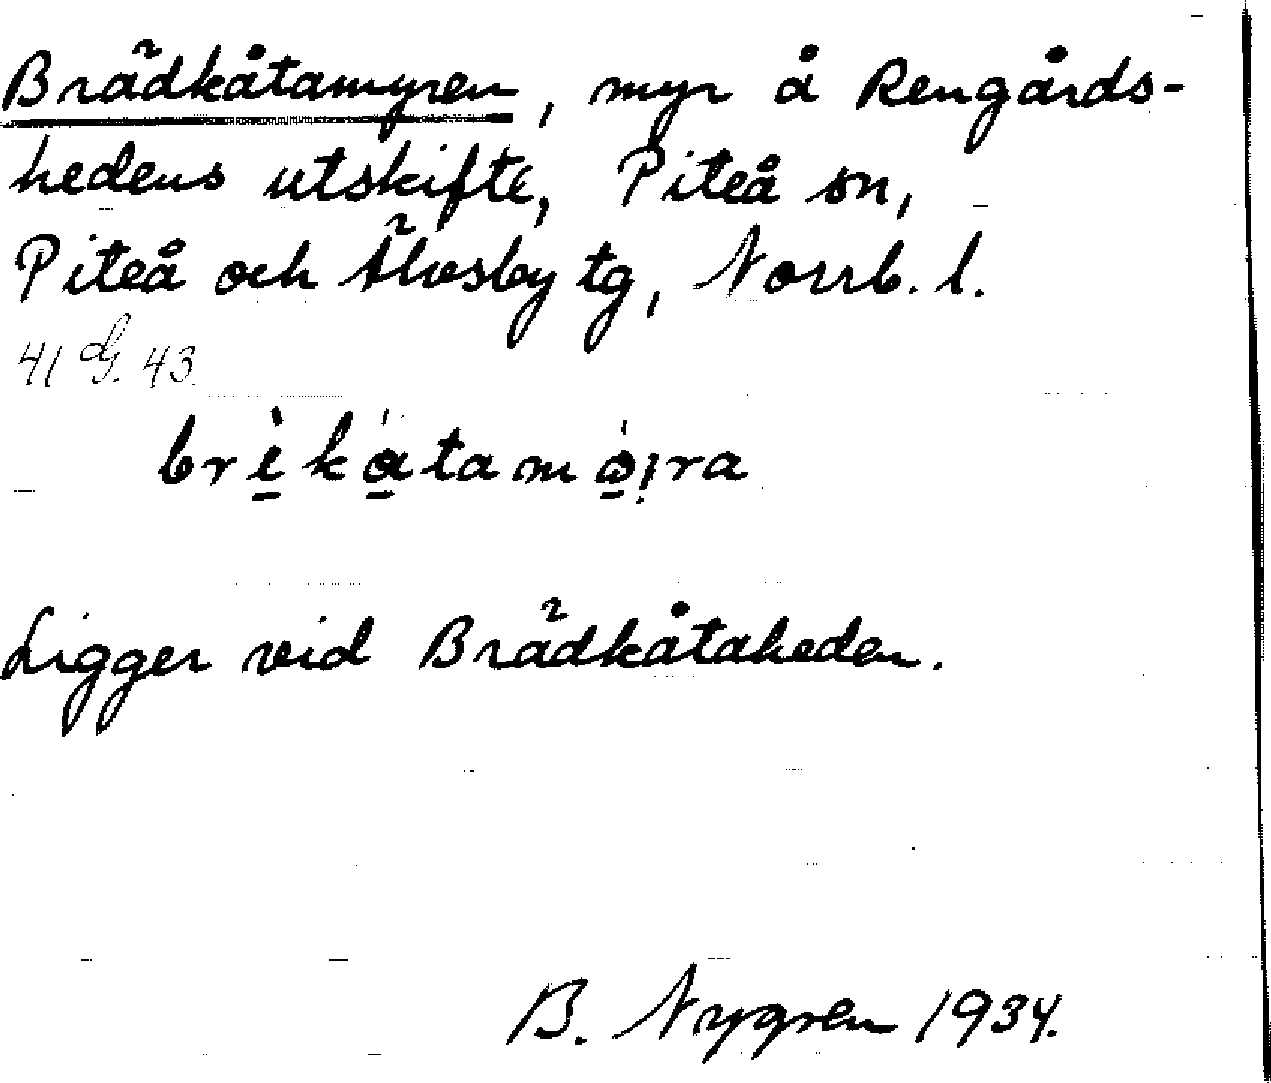 Brädkåtamyren, myr å Rengårds-
hedens utskifte, Piteå sn,
Piteå och Älvsby tg, Norrb. l.
41 G. 43.
brèkátamǿịra
Ligger vid Brädkåtaheden.
B. Nygren 1934.